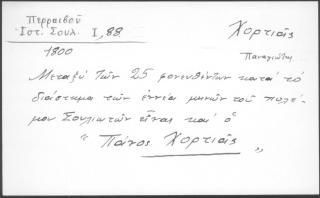 Περραιβοῦ
Ἱστ. Σουλ. I, 88.
1800
Χορτιάτης
Παναγιώτης
Μεταξὺ τῶν 25 φονευθέντων κατὰ τὸ
διάστημα τῶν ἐννέα μηνῶν τοῦ πολέ-
μου Σουλιωτῶν εἶναι καὶ ὁ
"Πάνος Χορτιάτης"